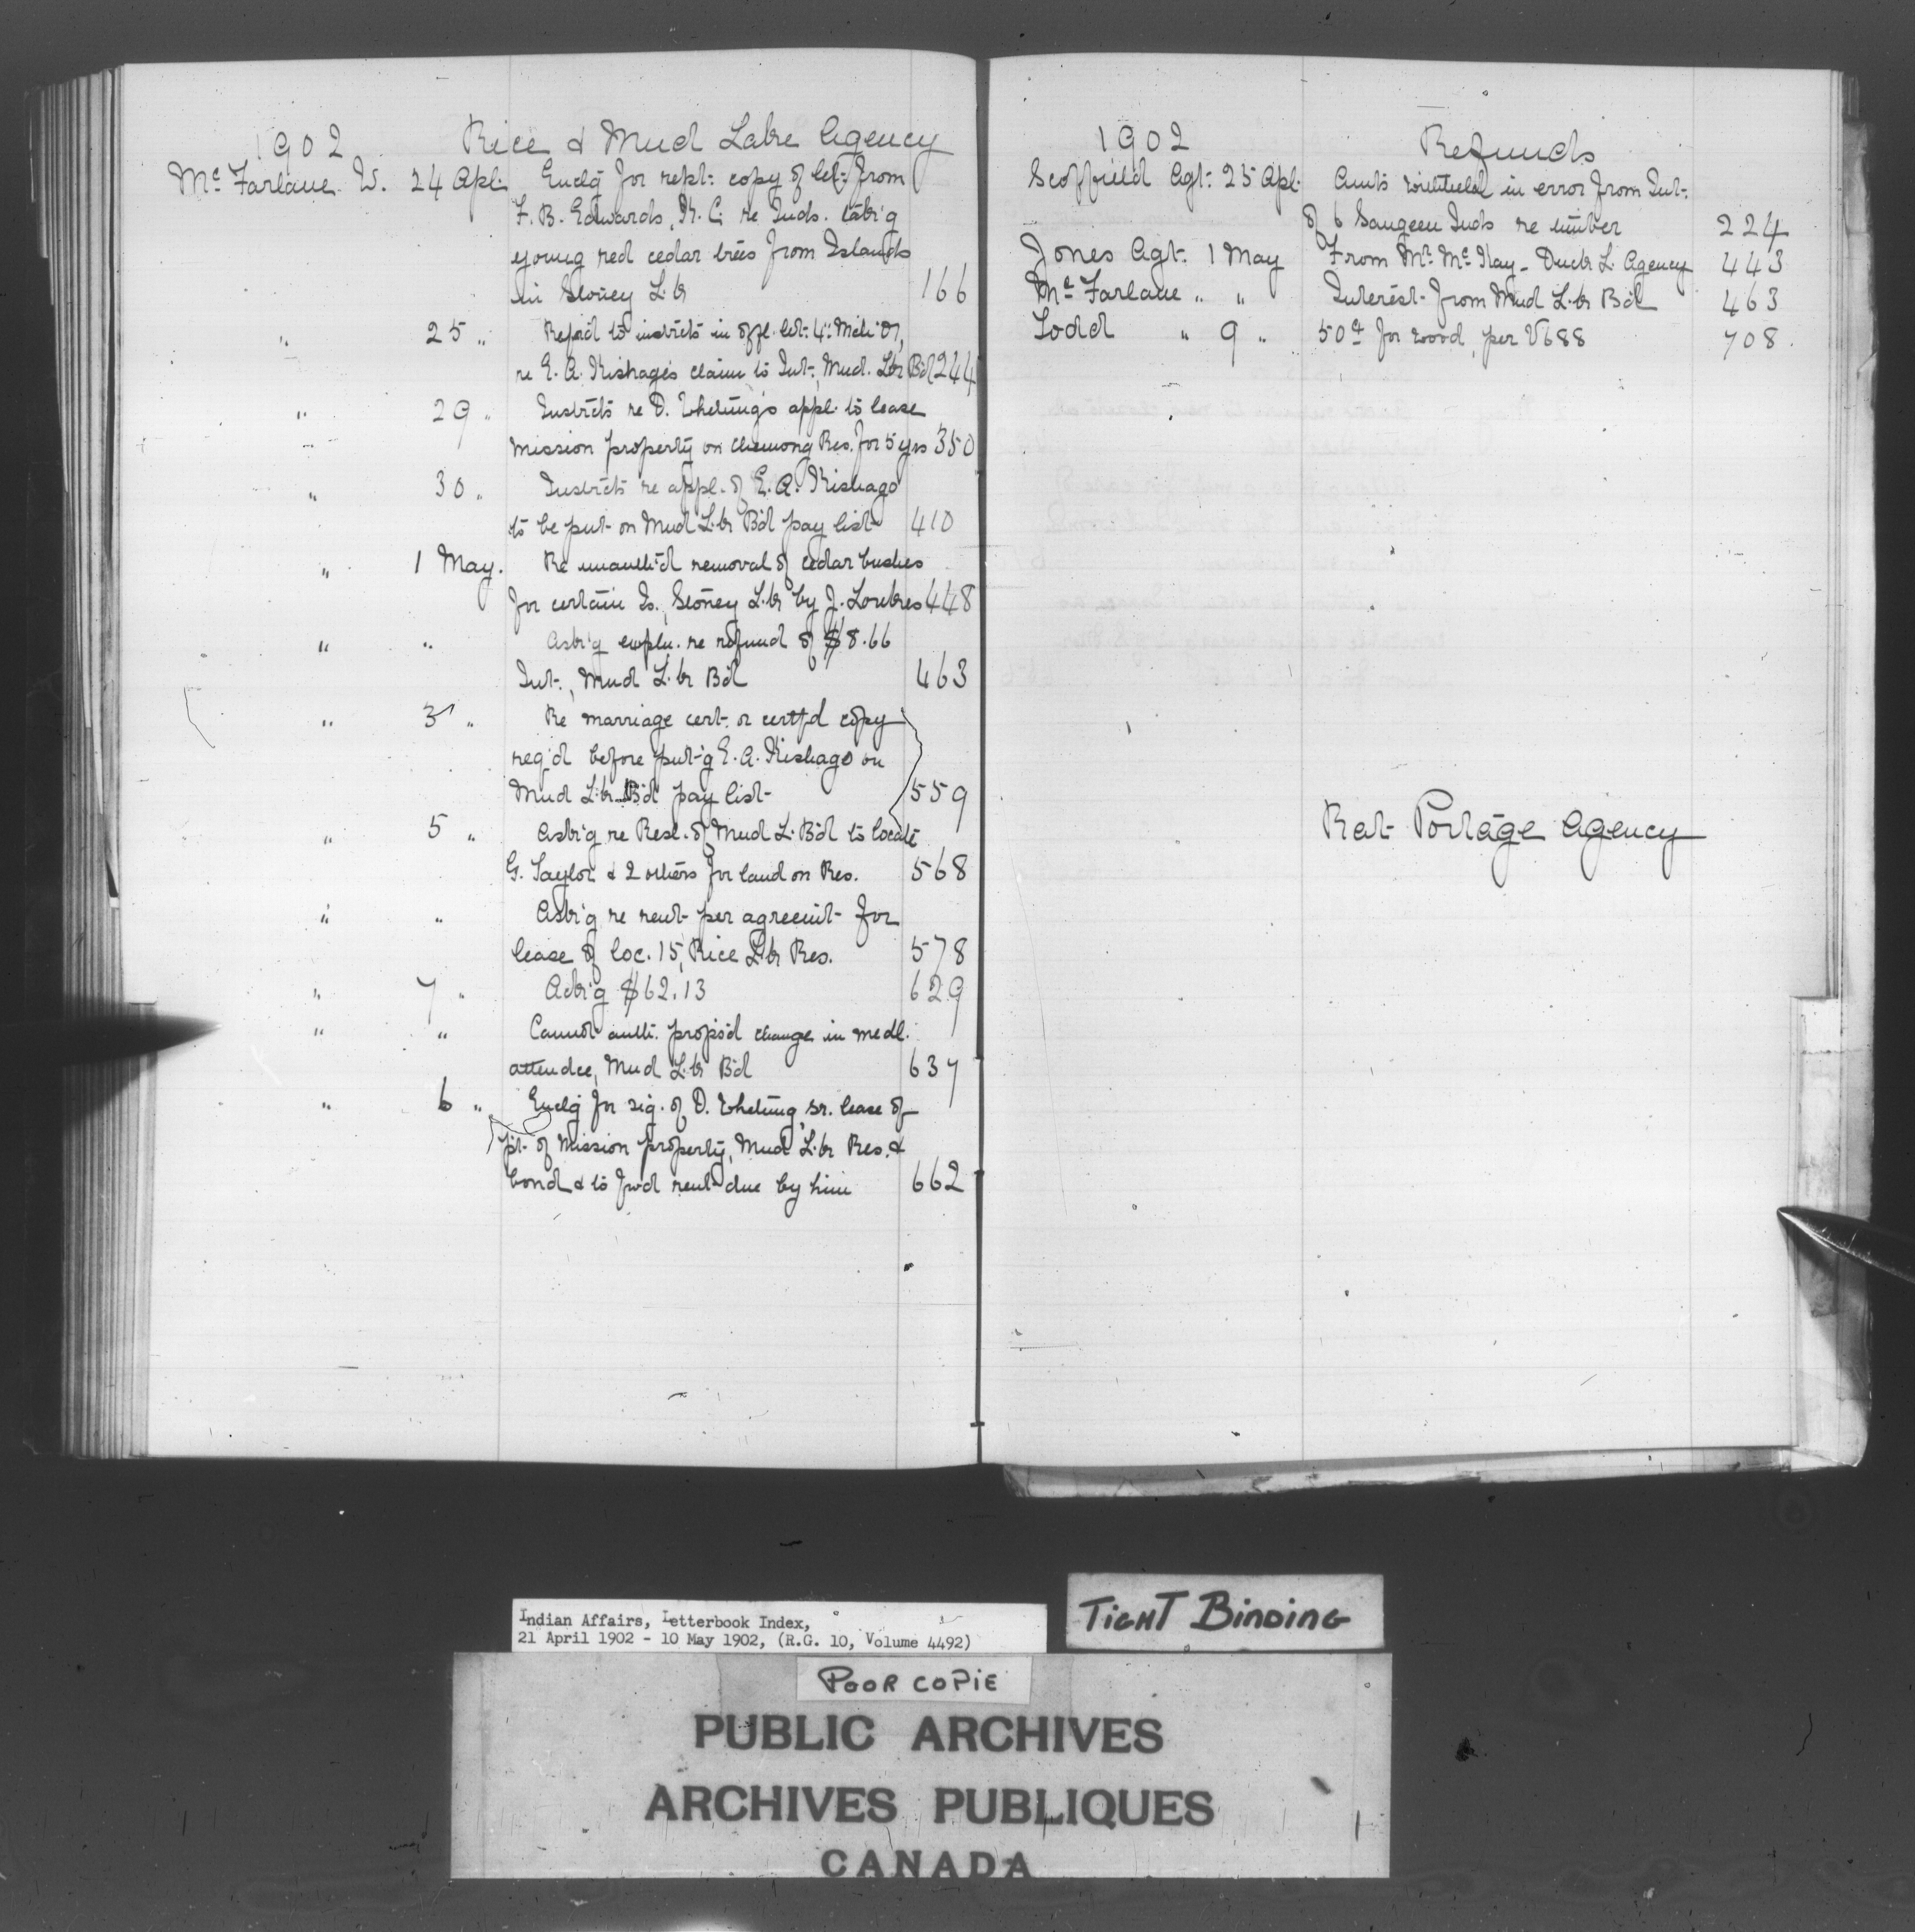 1902 Rice & Mud Lake Agency
McFarlane W. 24 Apl. Enclg for rept: copy of let: from
F. B. Edwards, K. C. re Inds. tak'g
young red cedar trees from Islands
in Stoney L.k 166
" 25 " Refer'd to instrcts in offl. let: 4th Mch
re E. A. Kishago's claim to Int., Mud. Lk Bd 244
" 29 " Instrcts re D. Whetung's appl. to lease
mission property on Chemong Res. for 5 yrs 350
" 30 " Instrcts re appl. of E. A. Kishago
to be put on Mud L.k Bd pay list 410
" 1 May. Re unauth'd removal of cedar bushes
for certain Is., Stoney L.k by J. 448
" " Ask'g expln. re refund of $8.66
Int., Mud L.k Bd 463
" 3 " Re marriage cert. or certf'd copy
req'd before put'g E. A. Kishago on
Mud L.k Bd pay list 559
" 5 " Ask'g re Resl. of Mud L. Bd to locate
G. Taylor & 2 others for land on Res. 568
" " Ask'g re rent per agreemt for
lease of loc. 15, Rice L.k Res. 578
" 7 " Ack'g $62.13 629
" " Cannot auth. propos'd change in medl.
attendce, Mud L.k Bd 637
" 6 " Enclg for sig. of D. Whetung, sr. lease of
pt. of Mission property, Mud L.k Res. &
bond & to fwd rent due by him 662
1902 Refunds
Scoffield Agt. 25 Apl. Amts withheld in error from Int.
of 6 Saugeen Inds re timber 224
Jones Agt. 1 May From Mr. McKay - Duck L. Agency 443
McFarlane " " Interest from Mud L.k Bd 463
Todd " 9 " 50¢ for wood, per V688 708
Rat Portage Agency
Indian Affairs, Letterbook Index,
21 April 1902 - 10 May 1902, (R.G. 10, Volume 4492)
TIGHT BINDING
POOR COPIE
PUBLIC ARCHIVES
ARCHIVES PUBLIQUES
CANADA